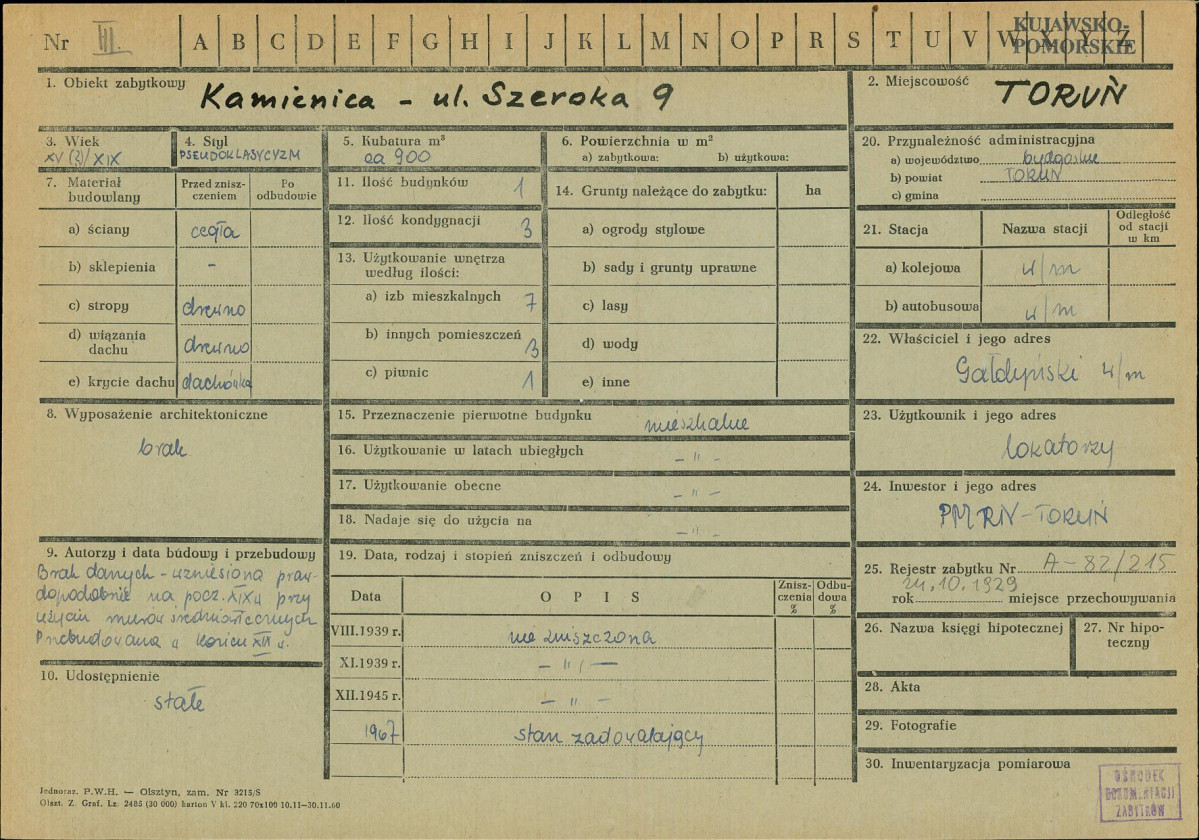 Nr III. A B C D E F G H I J K L M N O P R S T U V W X Y Z
KUJAWSKO-
POMORSKIE
1. Obiekt zabytkowy Kamienica - ul. Szeroka 9
2. Miejscowość TORUŃ
3. Wiek
XV (?)/XIX
4. Styl
PSEUDOKLASYCYZM
5. Kubatura m³
ca 900
6. Powierzchnia w m²
a) zabytkowa: b) użytkowa:
20. Przynależność administracyjna
a) województwo bydgoskie
b) powiat TORUŃ
c) gmina
7. Materiał
budowlany
Przed znisz-
czeniem
Po
odbudowie
a) ściany cegła
b) sklepienia -
c) stropy drewno
d) wiązania
dachu drewno
e) krycie dachu dachówka
11. Ilość budynków 1
12. Ilość kondygnacji 3
13. Użytkowanie wnętrza
według ilości:
a) izb mieszkalnych 7
b) innych pomieszczeń 3
c) piwnic 1
14. Grunty należące do zabytku: ha
a) ogrody stylowe
b) sady i grunty uprawne
c) lasy
d) wody
e) inne
21. Stacja
Nazwa stacji
Odległość
od stacji
w km
a) kolejowa w/m
b) autobusowa w/m
22. Właściciel i jego adres
Gałdyński w/m
8. Wyposażenie architektoniczne
brak
15. Przeznaczenie pierwotne budynku mieszkalne
16. Użytkowanie w latach ubiegłych - " -
17. Użytkowanie obecne - " -
18. Nadaje się do użycia na - " -
23. Użytkownik i jego adres
lokatorzy
24. Inwestor i jego adres
PMRN-TORUŃ
9. Autorzy i data budowy i przebudowy
Brak danych - wzniesiona praw-
dopodobnie na pocz. XIX w przy
użyciu murów średniowiecznych
Przebudowana w końcu XIX w.
10. Udostępnienie
stałe
19. Data, rodzaj i stopień zniszczeń i odbudowy
Data
O P I S
Znisz-
czenia
%
Odbu-
dowa
%
VIII.1939 r. nie zniszczona
XI.1939 r. - " -
XII.1945 r. - " -
1967 stan zadowalający
25. Rejestr zabytku Nr A-82/215
24.10.1929
rok miejsce przechowywania
26. Nazwa księgi hipotecznej
27. Nr hipo-
teczny
28. Akta
29. Fotografie
30. Inwentaryzacja pomiarowa
OŚRODEK
DOKUMENTACJI
ZABYTKÓW
Jednoraz. P.W.H. — Olsztyn, zam. Nr 3215/S
Olszt. Z. Graf. Lz. 2485 (30 000) karton V kl. 220 70x100 10.11—30.11.60